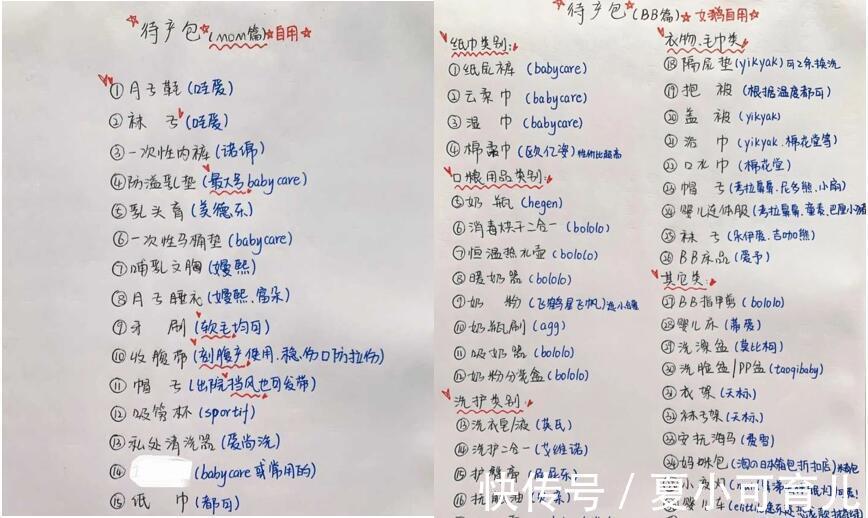 待产包(mom篇)自用
①月子鞋(哇爱)
②袜子(哇爱)
③一次性内裤(诺偶)
④防溢乳垫(最大号babycare)
⑤乳头膏(美德乐)
⑥一次性马桶垫(babycare)
⑦哺乳文胸(嫚熙)
⑧月子睡衣(嫚熙.富朵)
⑨牙刷(软毛均可)
⑩收腹带(刻腹产使用.稳伤口防拉伤)
⑪帽子(出院挡风也可发带)
⑫吸管杯(sportif)
⑬私处清洗器(爱尚洗)
⑭(babycare或常用的)
⑮纸巾(都可)
待产包(BB篇)女鹅自用
纸巾类别:
①纸尿裤(babycare)
②云柔巾(babycare)
③湿巾(babycare)
④棉柔巾(欧亿姿)性价比超高
口粮用品类别:
⑤奶瓶(hegen)
⑥消毒烘干二合一(bololo)
⑦恒温热水壶(bololo)
⑧暖奶器(bololo)
⑨奶粉(飞鹤星飞帆)
⑩奶瓶刷(agg)
⑪吸奶器(bololo)
⑫奶粉分装盒(bololo)
洗护类别:
⑬洗衣皂/液(英氏)
⑭洗护二合一(戈维诺)
⑮护臀膏(屁屁乐)
⑯抚触油
衣物.毛巾类
⑱隔尿垫(yikyak)可2年.换洗
⑲抱被(根据温度都可)
⑳盖被(yikyak)
㉑浴巾(yikyak.棉花堂等)
㉒口水巾(棉花堂)
㉓帽子(考拉鼻鼻.尼多熊.小扇)
㉔婴儿连体服(考拉鼻鼻.童泰.巴厘小猪)
㉕袜子(乐伊爱.吉咖熊)
㉖BB床品(爱予)
其它类:
㉗BB指甲剪(bololo)
㉘婴儿床(蒂爱)
㉙洗澡盆(莫比桐)
㉚洗脸盆/PP盆(taoqibaby)
㉛衣架(天标)
㉜袜子架(天标)
㉝安抚海马(费雪)
㉞妈咪包(淘の日本箱包折扣店)
快传号/夏小可育儿